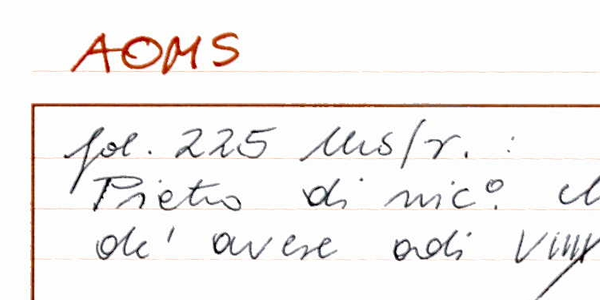 AOMS
fol. 225 Ms/r. :
Pietro di nic°.
de' avere adi Viiij